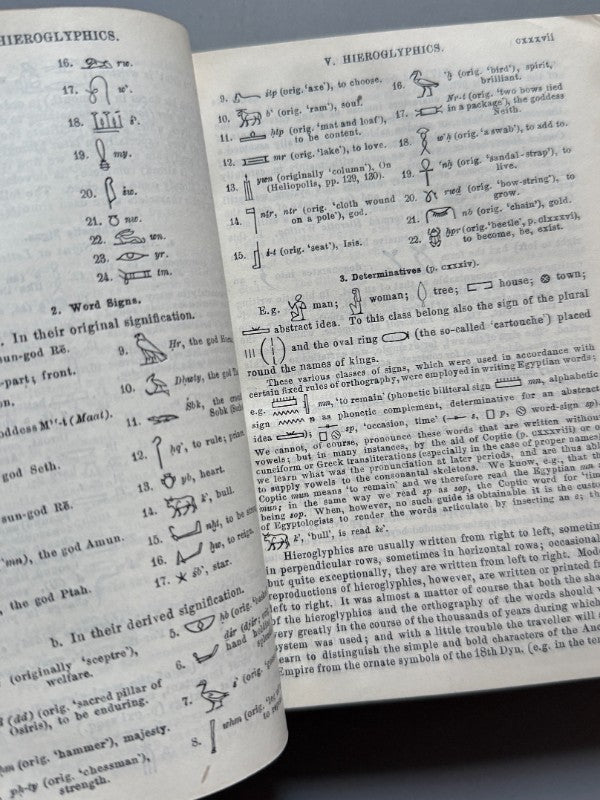 HIEROGLYPHICS.
16. rw.
17.
18.
19. my.
20. św.
21. nw.
22. wn.
23. yr.
24. tm.
2. Word Signs.
In their original signification.
sun-god Rē.
-part; front.
goddess (Maat).
God Seth.
sun-god Rē.
the god Amun.
the god Ptah.
9. Hr, the god
10. Dhwty, the god
11. Sbk, the
12. to rule;
13. yb, heart.
14. bull.
15.
16. to reign.
17. star.
b. In their derived signification.
(originally ‘sceptre’), welfare.
(dd) (orig. ‘sacred pillar of Osiris), to be enduring.
(orig. ‘hammer’), majesty.
pḥ-ty (orig. ‘chessman’), strength.
5.
6.
hand
7.
8. wḥm (orig.
V. HIEROGLYPHICS.
cxxxvii
9. śtp (orig. ‘axe’), to choose.
10. b’ (orig. ‘ram’), soul.
11. ḥtp (orig. ‘mat and loaf’), to be content.
12. mr (orig. ‘lake’), to love.
13. ywn (originally ‘column’), On (Heliopolis, pp. 129, 130).
14. nṯr, ntr (orig. ‘cloth wound on a pole’), god.
15. ś-t (orig. ‘seat’), Isis.
16. (orig. ‘bird’), spirit, brilliant.
17. Nr-t (orig. ‘two bows tied in a package’), the goddess Neith.
18. w’ḥ (orig. ‘a swab’), to add to.
19. ‘nḫ (orig. ‘sandal-strap’), to live.
20. rwd (orig. ‘bow-string’), to grow.
21. nb (orig. ‘chain’), gold.
22. ḫpr (orig. ‘beetle’, p. clxxxvi), to become, be, exist.
3. Determinatives (p. cxxxiv).
E.g. man; woman; tree; house; town;
abstract idea. To this class belong also the sign of the plural
and the oval ring (the so-called ‘cartouche’) placed
round the names of kings.
These various classes of signs, which were used in accordance with
certain fixed rules of orthography, were employed in writing Egyptian words;
e.g. mn, ‘to remain’ (phonetic biliteral sign mn, alphabetic
sign n as phonetic complement, determinative for an abstract
idea); sp, ‘occasion, time’ (s, p, word-sign sp).
We cannot, of course, pronounce these words that are written without
vowels; but in many instances, by the aid of Coptic (p. cxxxviii) or of
cuneiform or Greek transliterations (especially in the case of proper names)
we learn what was the pronunciation at later periods, and are thus able
to supply vowels to the consonantal skeletons. We know, e.g., that the
Coptic mun means ‘to remain’ and we therefore read the Egyptian mn as
mun; in the same way we read sp as sop, the Coptic word for ‘time’
being sop. When, however, no such guide is obtainable it is the custom
of Egyptologists to render the words articulate by inserting an e; thus
k’, ‘bull’, is read ke’.
Hieroglyphics are usually written from right to left, sometimes
in perpendicular rows, sometimes in horizontal rows; occasionally
but quite exceptionally, they are written from left to right.
reproductions of hieroglyphics, however, are written or printed from
left to right. It was almost a matter of course that both the
of the hieroglyphics and the orthography of the words should
very greatly in the course of the thousands of years during which
system was used; and with a little trouble the traveller will
learn to distinguish the simple and bold characters of the
Empire from the ornate symbols of the 18th Dyn. (e.g. in the